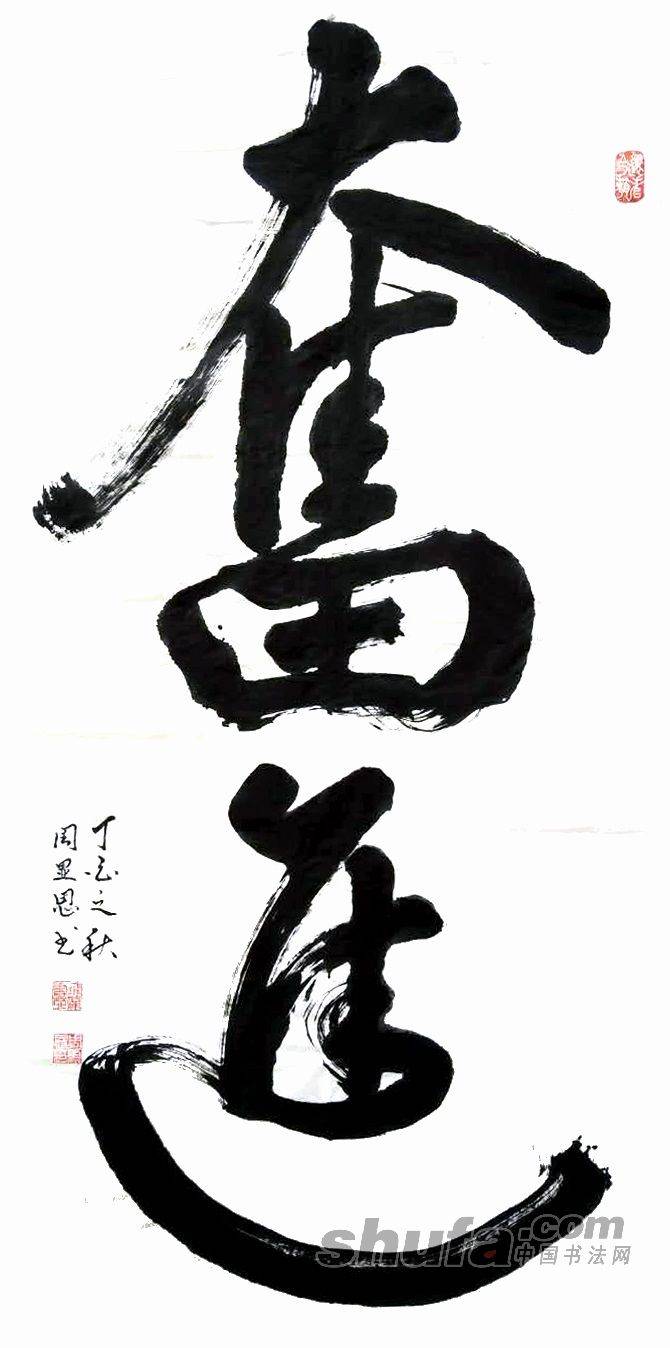 奮進
丁亥之秋
周显恩书
shufa.com
中国书法网